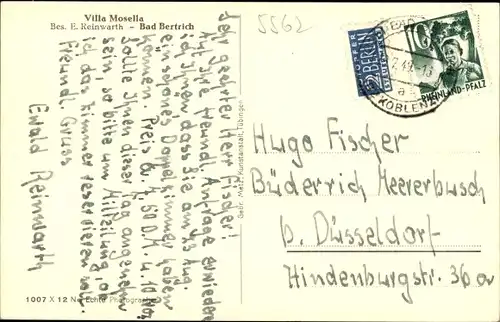 Villa Mosella
Bes. E. Reinwarth – Bad Bertrich
5562
Sehr geehrter Herr Fischer!
Auf Ihre freundl. Anfrage erwidere
ich Ihnen dass Sie am 13. Aug.
ein schönes Doppelzimmer haben
können. Preis à 7,50 D.M. u. 10 %
Sollte Ihnen dieser Tag angenehm
sein so bitte um Mitteilung, ob
ich das Zimmer reservieren soll.
Freundl. Gruss
Ewald Reinwarth
Gebr. Metz, Kunstanstalt, Tübingen
NOTOPFER
2 BERLIN
STEUERMARKE
BAD
KOBLENZ
a
RHEINLAND-PFALZ
Hugo Fischer
Büderich Meererbusch
b. Düsseldorf
Hindenburgstr. 36a
1007 X 12 N Echte Photographie